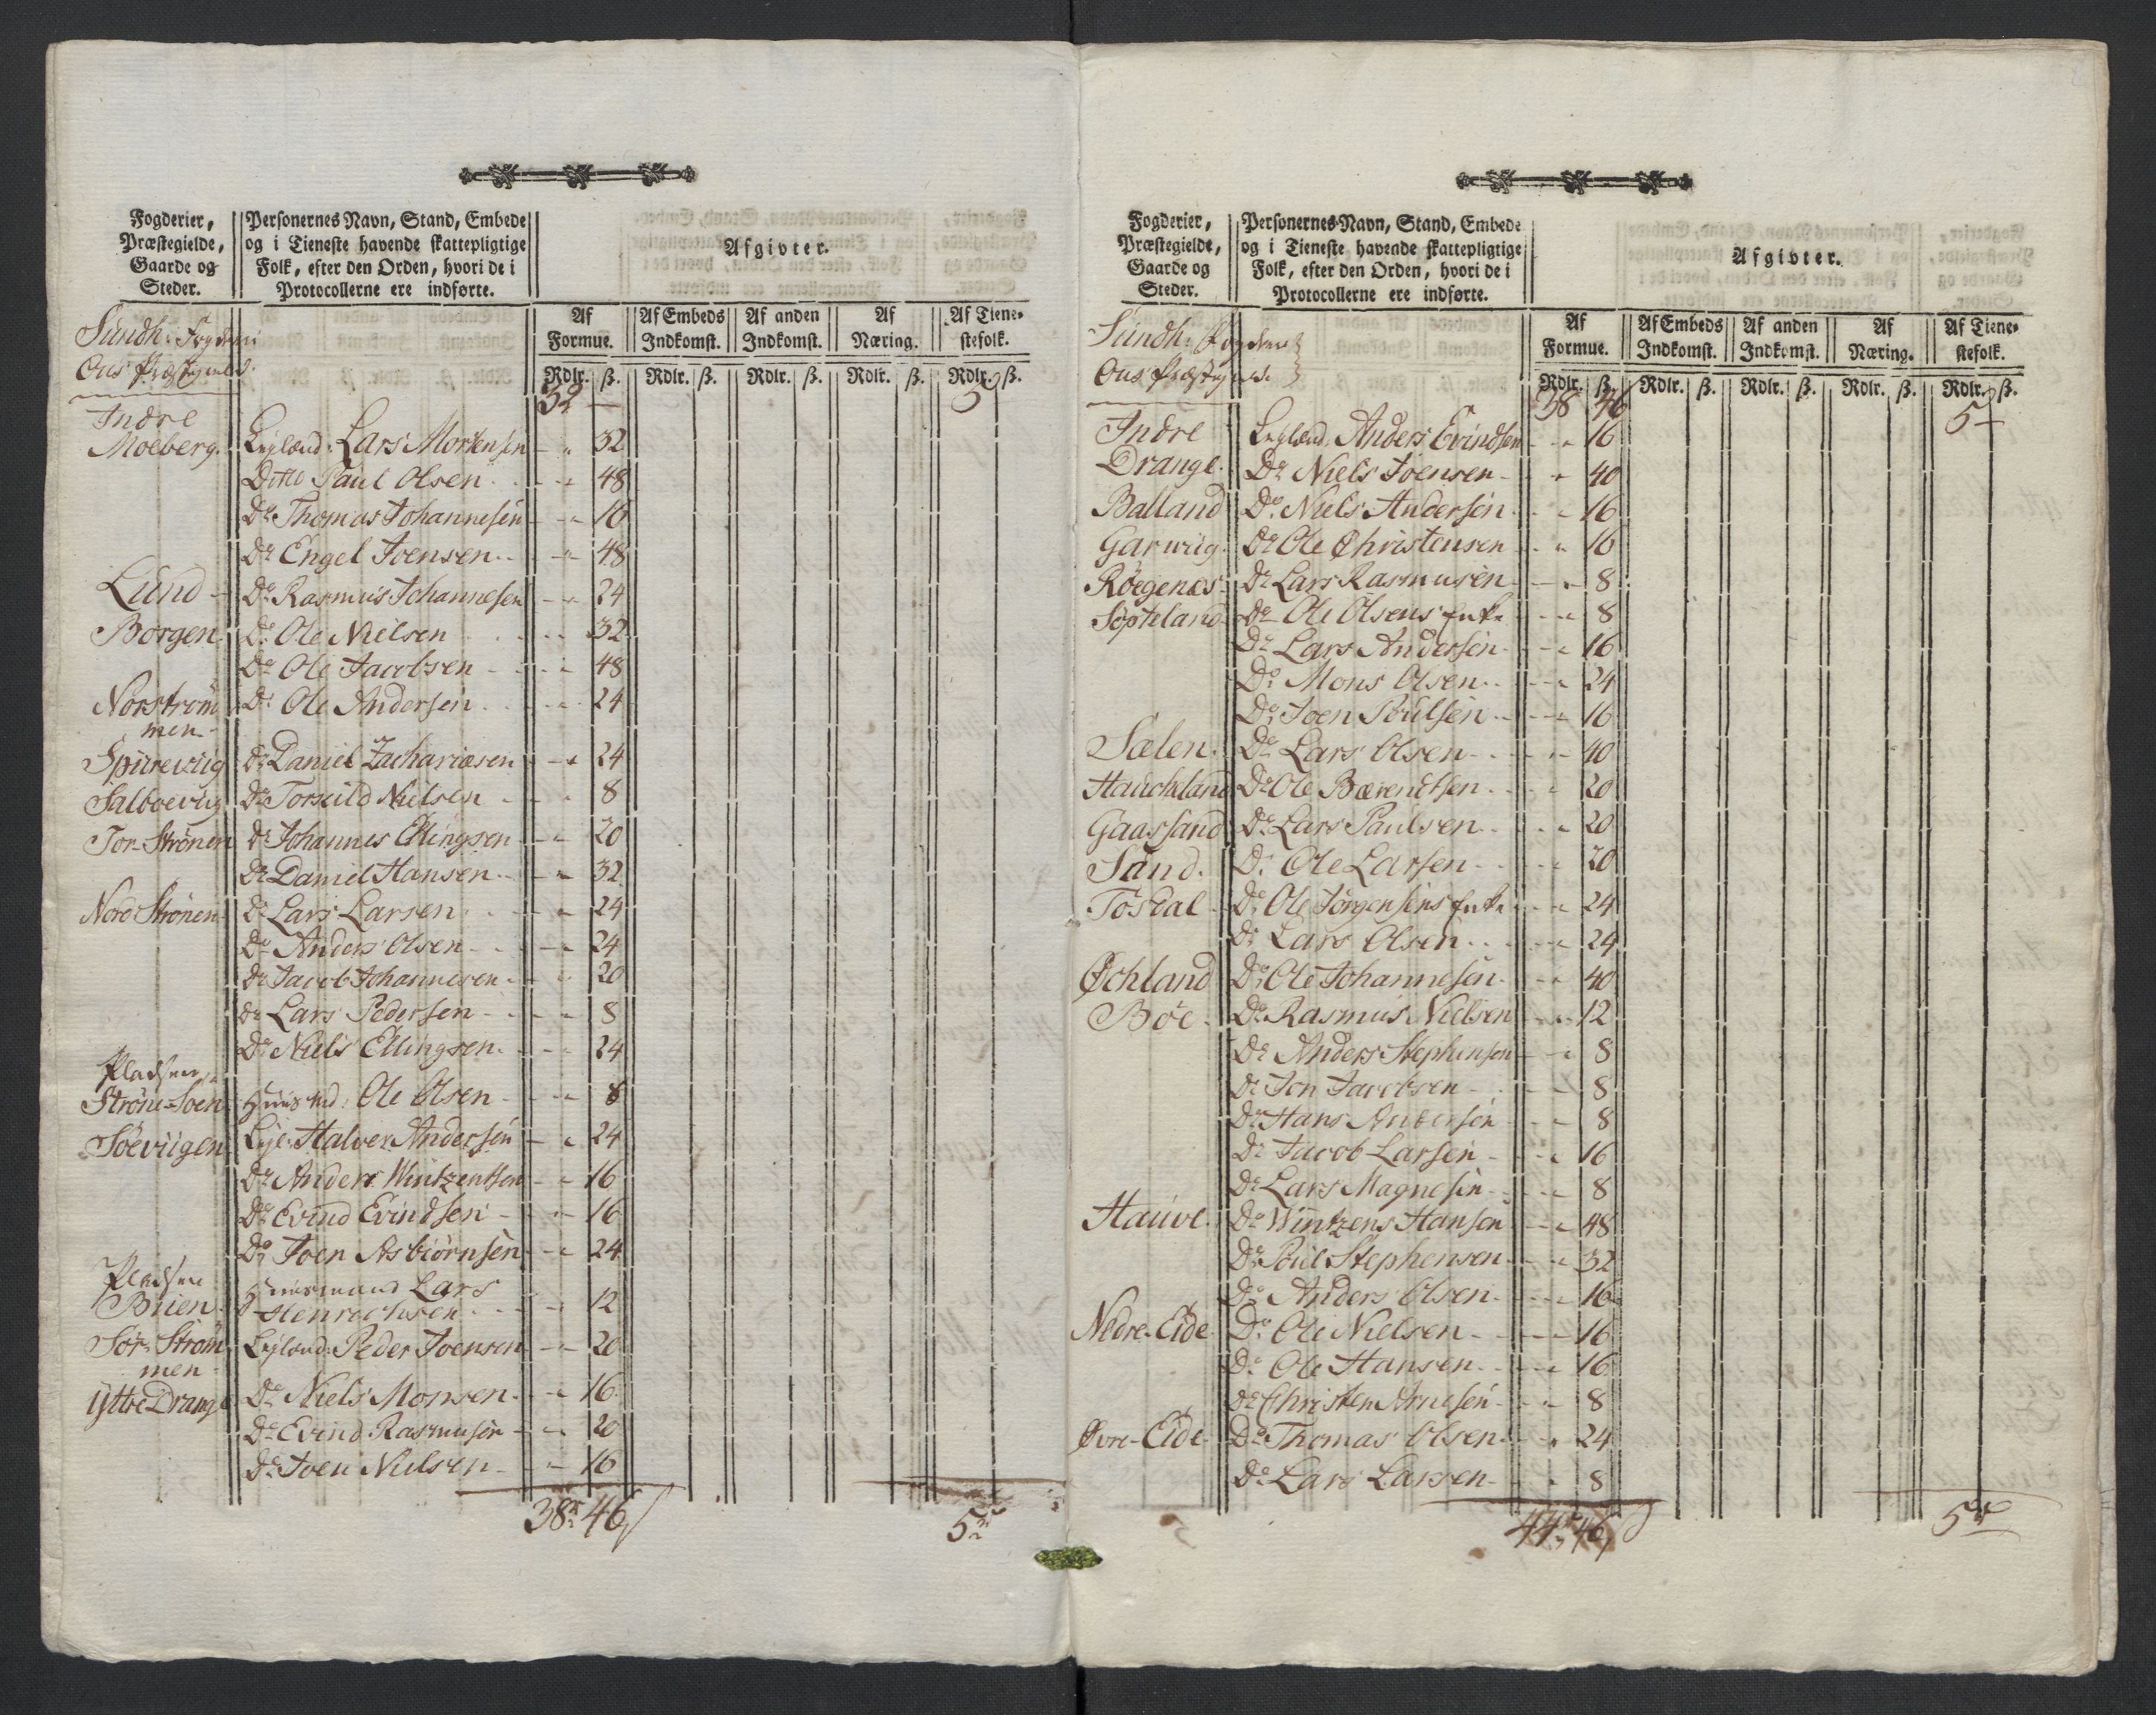 Fogderier, Præstegielde, Gaarde og Steder.
Personernes Navn, Stand, Embede og i Tieneste havende skattepligtige Folk, efter den Orden, hvori de i Protocollerne ere indførte.
Afgivter.
Af Formue. Af Embeds Indkomst. Af anden Indkomst. Af Næring. Af Tienestefolk.
Rdlr. ß. Rdlr. ß. Rdlr. ß. Rdlr. ß. Rdlr. ß.
Sundh: Fogderi
Ous Præstegield.
32 — 5
Indre
Moeberg. Leylænd: Lars Mortensen - „ 32
Ditto Paul Olsen - „ 48
Do Thomas Johannesen - „ 16
Do Engel Joensen - „ 48
Lund - Do Rasmus Johannesen - „ 24
Borgen Do Ole Nielsen - „ 32
Do Ole Jacobsen - „ 48
Norstrøm Do Ole Andersen - „ 24
men
Spureviig Do Daniel Zachariæsen - „ 24
Salboeviig Do Torkild Nielsen - „ 8
Sør-Strønen Do Johannes Ellingsen - „ 20
Do Daniel Hansen - „ 32
Nord Strønen Do Lars Larsen - „ 24
Do Anders Olsen - „ 24
Do Jacob Johannesen - „ 20
Do Lars Pedersen - „ 8
Do Niels Ellingsen - „ 24
Pladsen
Strøne-Soen Huusmd: Ole Olsen - „ 8
Søeviigen Leyl: Halvor Andersen - „ 24
Do Anders Wintzentsen - „ 16
Do Evind Evindsen - „ 16
Do Joen Asbiørnsen - „ 24
Pladsen Huusmand Lars
Buien Henrichsen - „ 12
Sør-Strøm Leylænd: Peder Joensen - „ 20
men
Yttre Drange Do Niels Monsen - „ 16
Do Evind Rasmusen - „ 20
Do Joen Nielsen - „ 16
38 46 5
Fogderier, Præstegielde, Gaarde og Steder.
Personernes Navn, Stand, Embede og i Tieneste havende skattepligtige Folk, efter den Orden, hvori de i Protocollerne ere indførte.
Afgivter.
Af Formue. Af Embeds Indkomst. Af anden Indkomst. Af Næring. Af Tienestefolk.
Rdlr. ß. Rdlr. ß. Rdlr. ß. Rdlr. ß. Rdlr. ß.
Sundh: Fogderie
Ous Præstegield.
38 46 5 —
Indre Leylænd: Anders Evindsen - „ 16
Drange Do Niels Joensen - „ 40
Balland Do Niels Andersen - „ 16
Garwiig Do Ole Christensen - „ 16
Røegenæs Do Lars Rasmusen - „ 8
Søpteland Do Ole Olsens Enke - „ 8
Do Lars Andersen - „ 16
Do Mons Olsen - „ 24
Do Joen Poulsen - „ 16
Sælen Do Lars Olsen - „ 40
Hauchland Do Ole Bærentsen - „ 20
Gaassand Do Lars Paulsen - „ 20
Sand. Do Ole Larsen - „ 20
Tøsdal Do Ole Jørgensens Enke - „ 24
Do Lars Olsen - „ 24
Øchland Do Ole Johannesen - „ 40
Bøe Do Rasmus Nielsen - „ 12
Do Anders Stephensen - „ 8
Do Jon Jacobsen - „ 8
Do Hans Andersen - „ 8
Do Jacob Larsen - „ 16
Do Lars Magnesen - „ 8
Hauve Do Wintzens Hansen - „ 48
Do Poul Stephensen - „ 32
Do Anders Olsen - „ 16
Nedre-Eide Do Ole Nielsen - „ 16
Do Ole Hansen - „ 16
Do Christen Arnesen - „ 8
Øvre-Eide Do Thomas Olsen - „ 24
Do Lars Larsen - „ 8
44 46 5